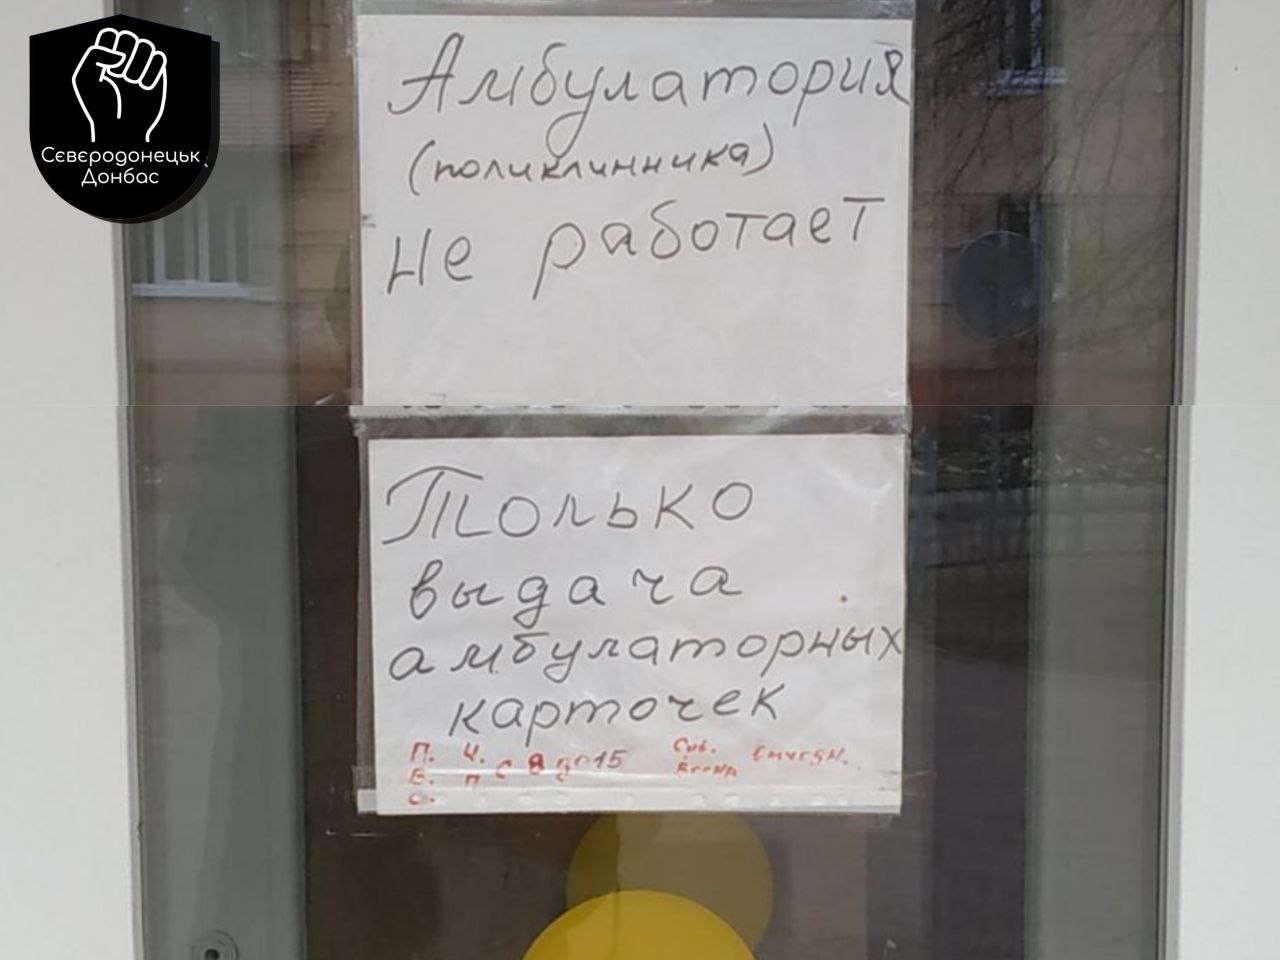 Сєвєродонецьк
Донбас
Амбулатория
(поликлинника)
Не работает
Только
выдача
амбулаторных
карточек
П. Ч. С 8 до 15
В. П
С.